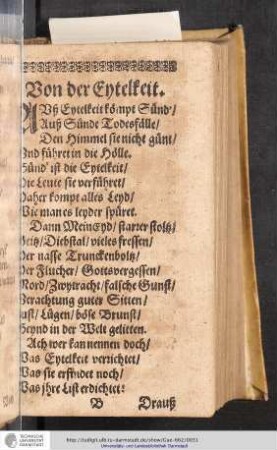 Von der Eytelkeit.
AUß Eytelkeit kömpt Sünd'/
Auß Sünde Todesfälle/
Den Himmel sie nicht günt/
Vnd führet in die Hölle.
Sünd' ist die Eytelkeit/
Die Leute sie verführet/
Daher kompt alles Leyd/
Wie man es leyder spüret.
Dann MeinEyd/ starrer stoltz/
Geitz/ Diebstal/ vieles fressen/
Der nasse Trunckenboltz/
Der Flucher/ Gottsvergessen/
Mord/ Zwytracht/ falsche Gunst/
Verachtung guter Sitten/
Lust/ Lügen/ böse Brunst/
Seynd in der Welt gelitten.
Ach wer kan nennen doch/
Was Eytelkeit verrichtet/
Was sie erfindet noch/
Was jhre List erdichtet:
B Drauß
Universitäts- und Landesbibliothek Darmstadt